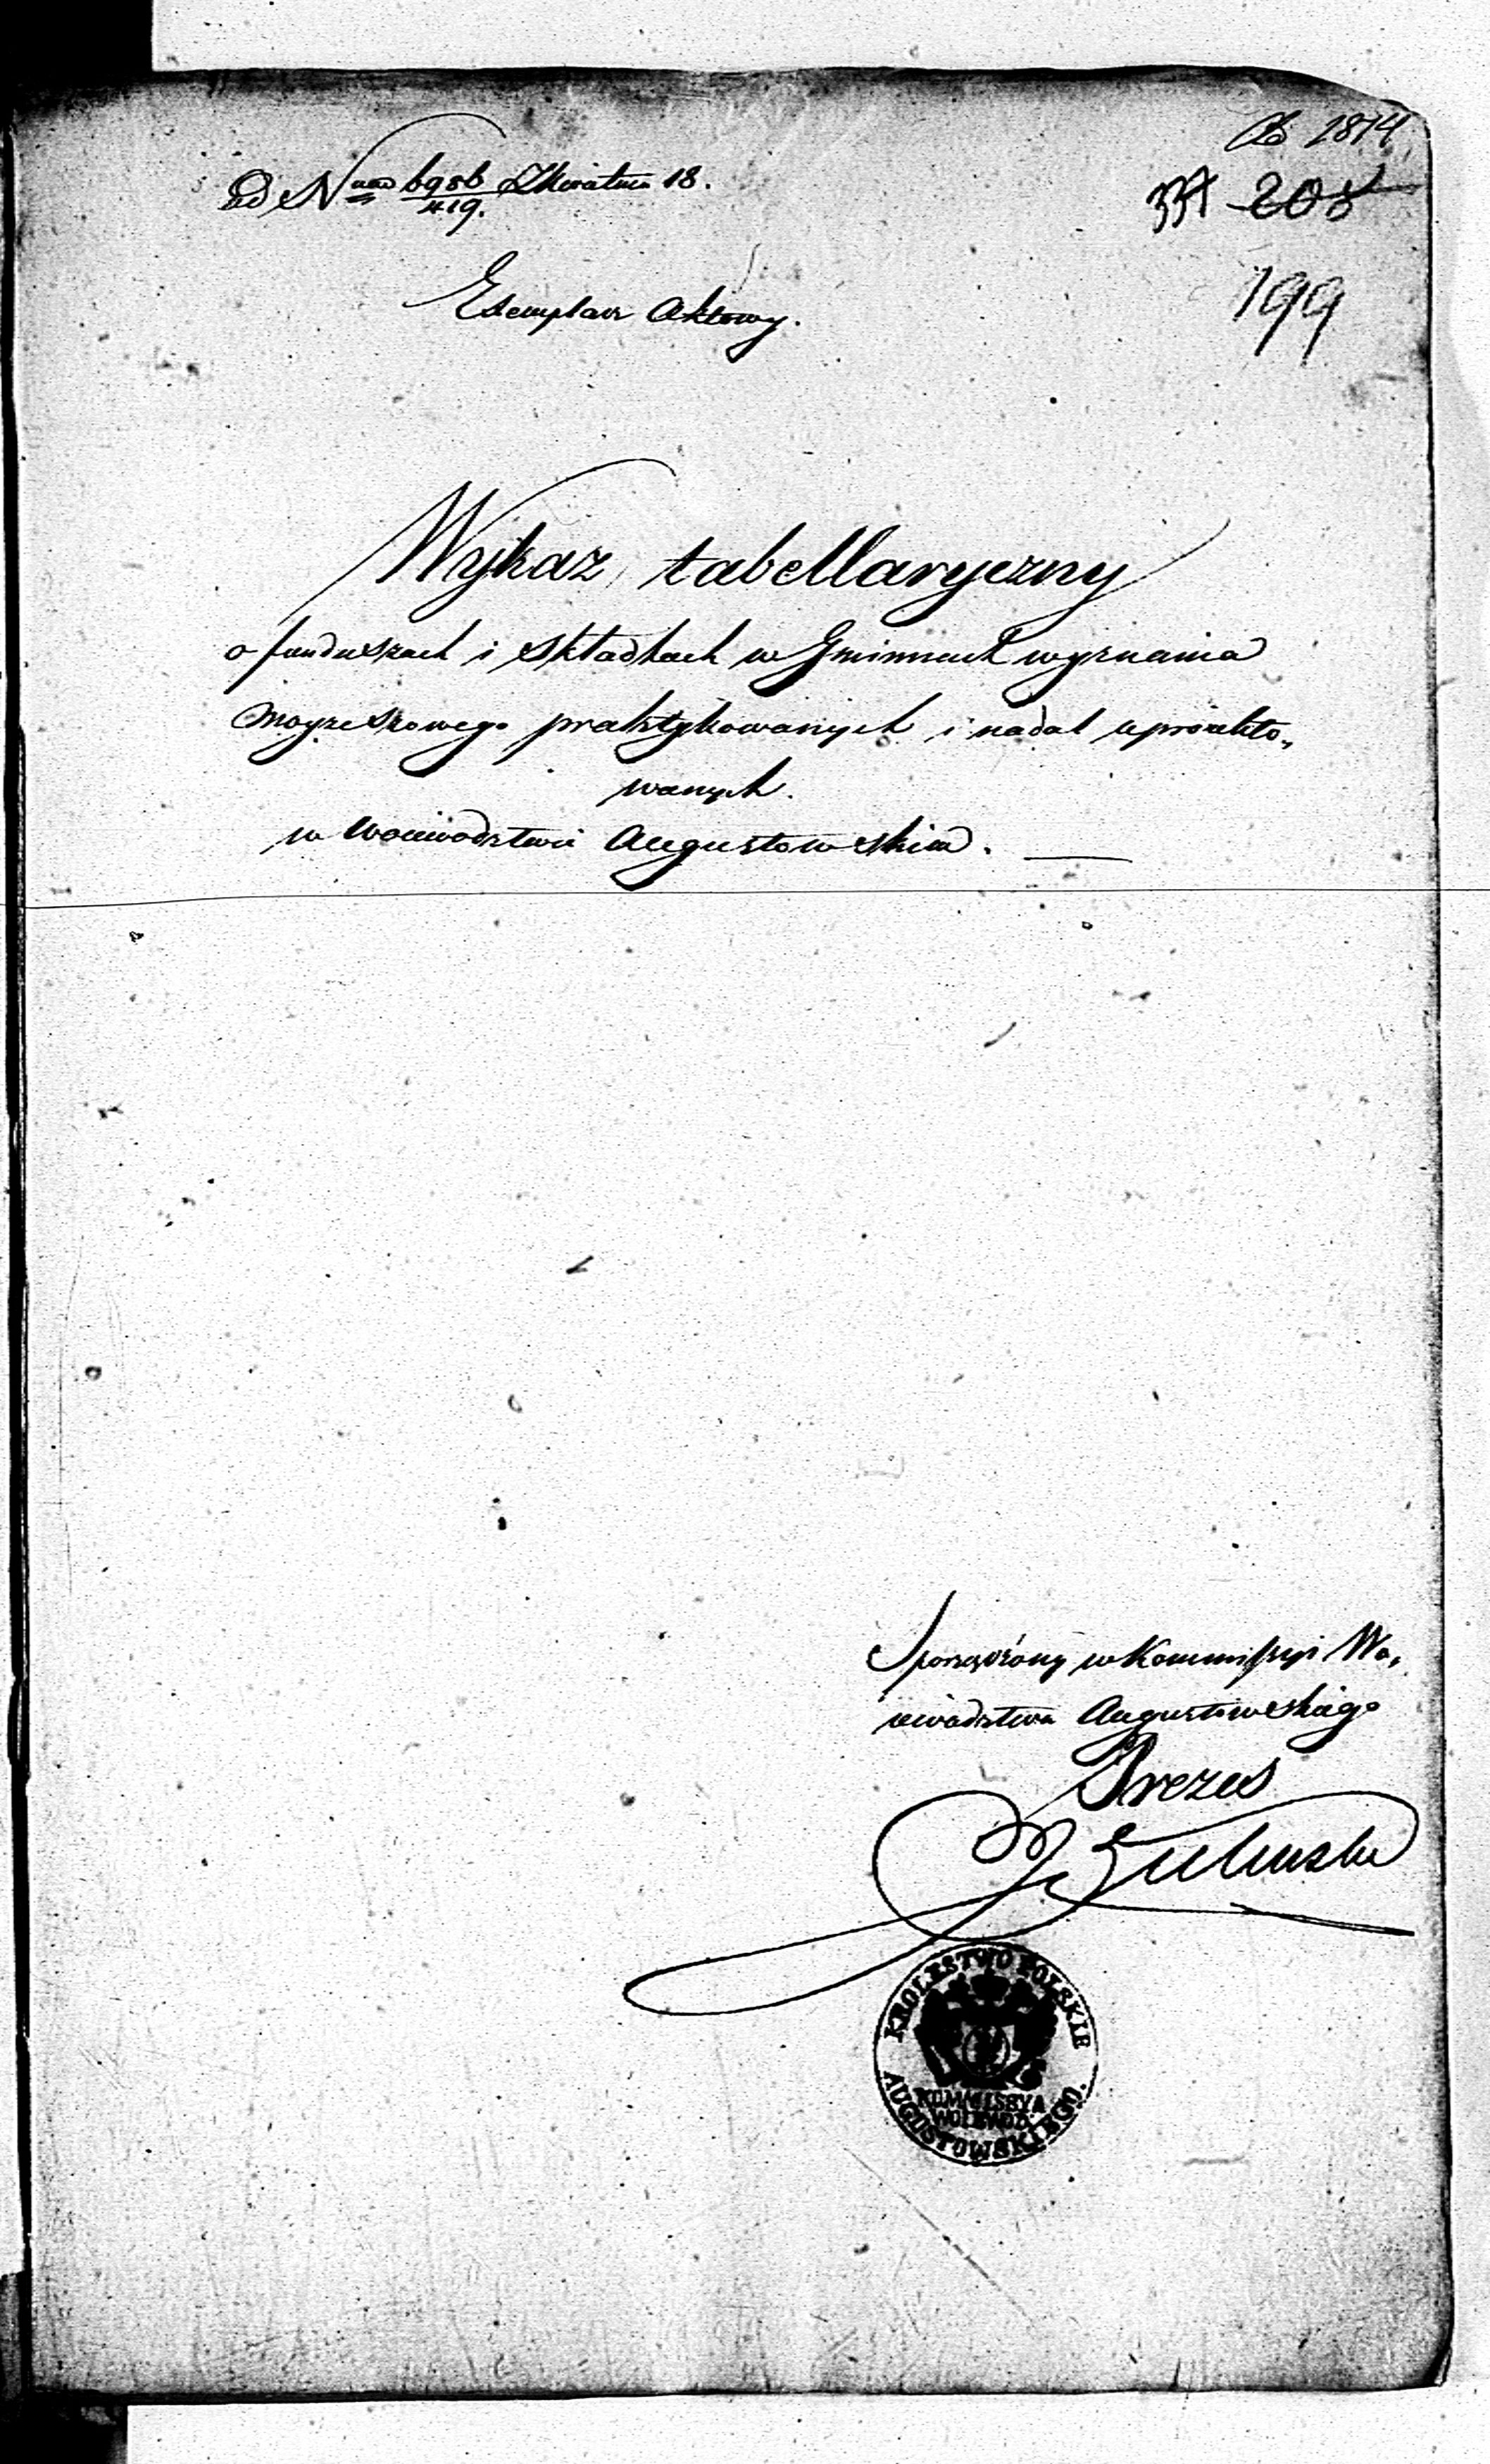 2874
Ad Nrum 6986/419. 18.
208
199
Exemplarz Aktowy.
Wykaz tabellaryczny
o funduszach i składkach w Gminach wyznania
Moyżeszowego praktykowanych i nadal uproiekto„
wanych.
w Woiewodztwie Augustowskim.
Sporządzony w Kommissyi Wo„
iewodztwa Augustowskiego
Prezes
KROLESTWO POLSKIE
KOMMISSYA
WOIEWODZ.
AUGUSTOWSKIEGO.